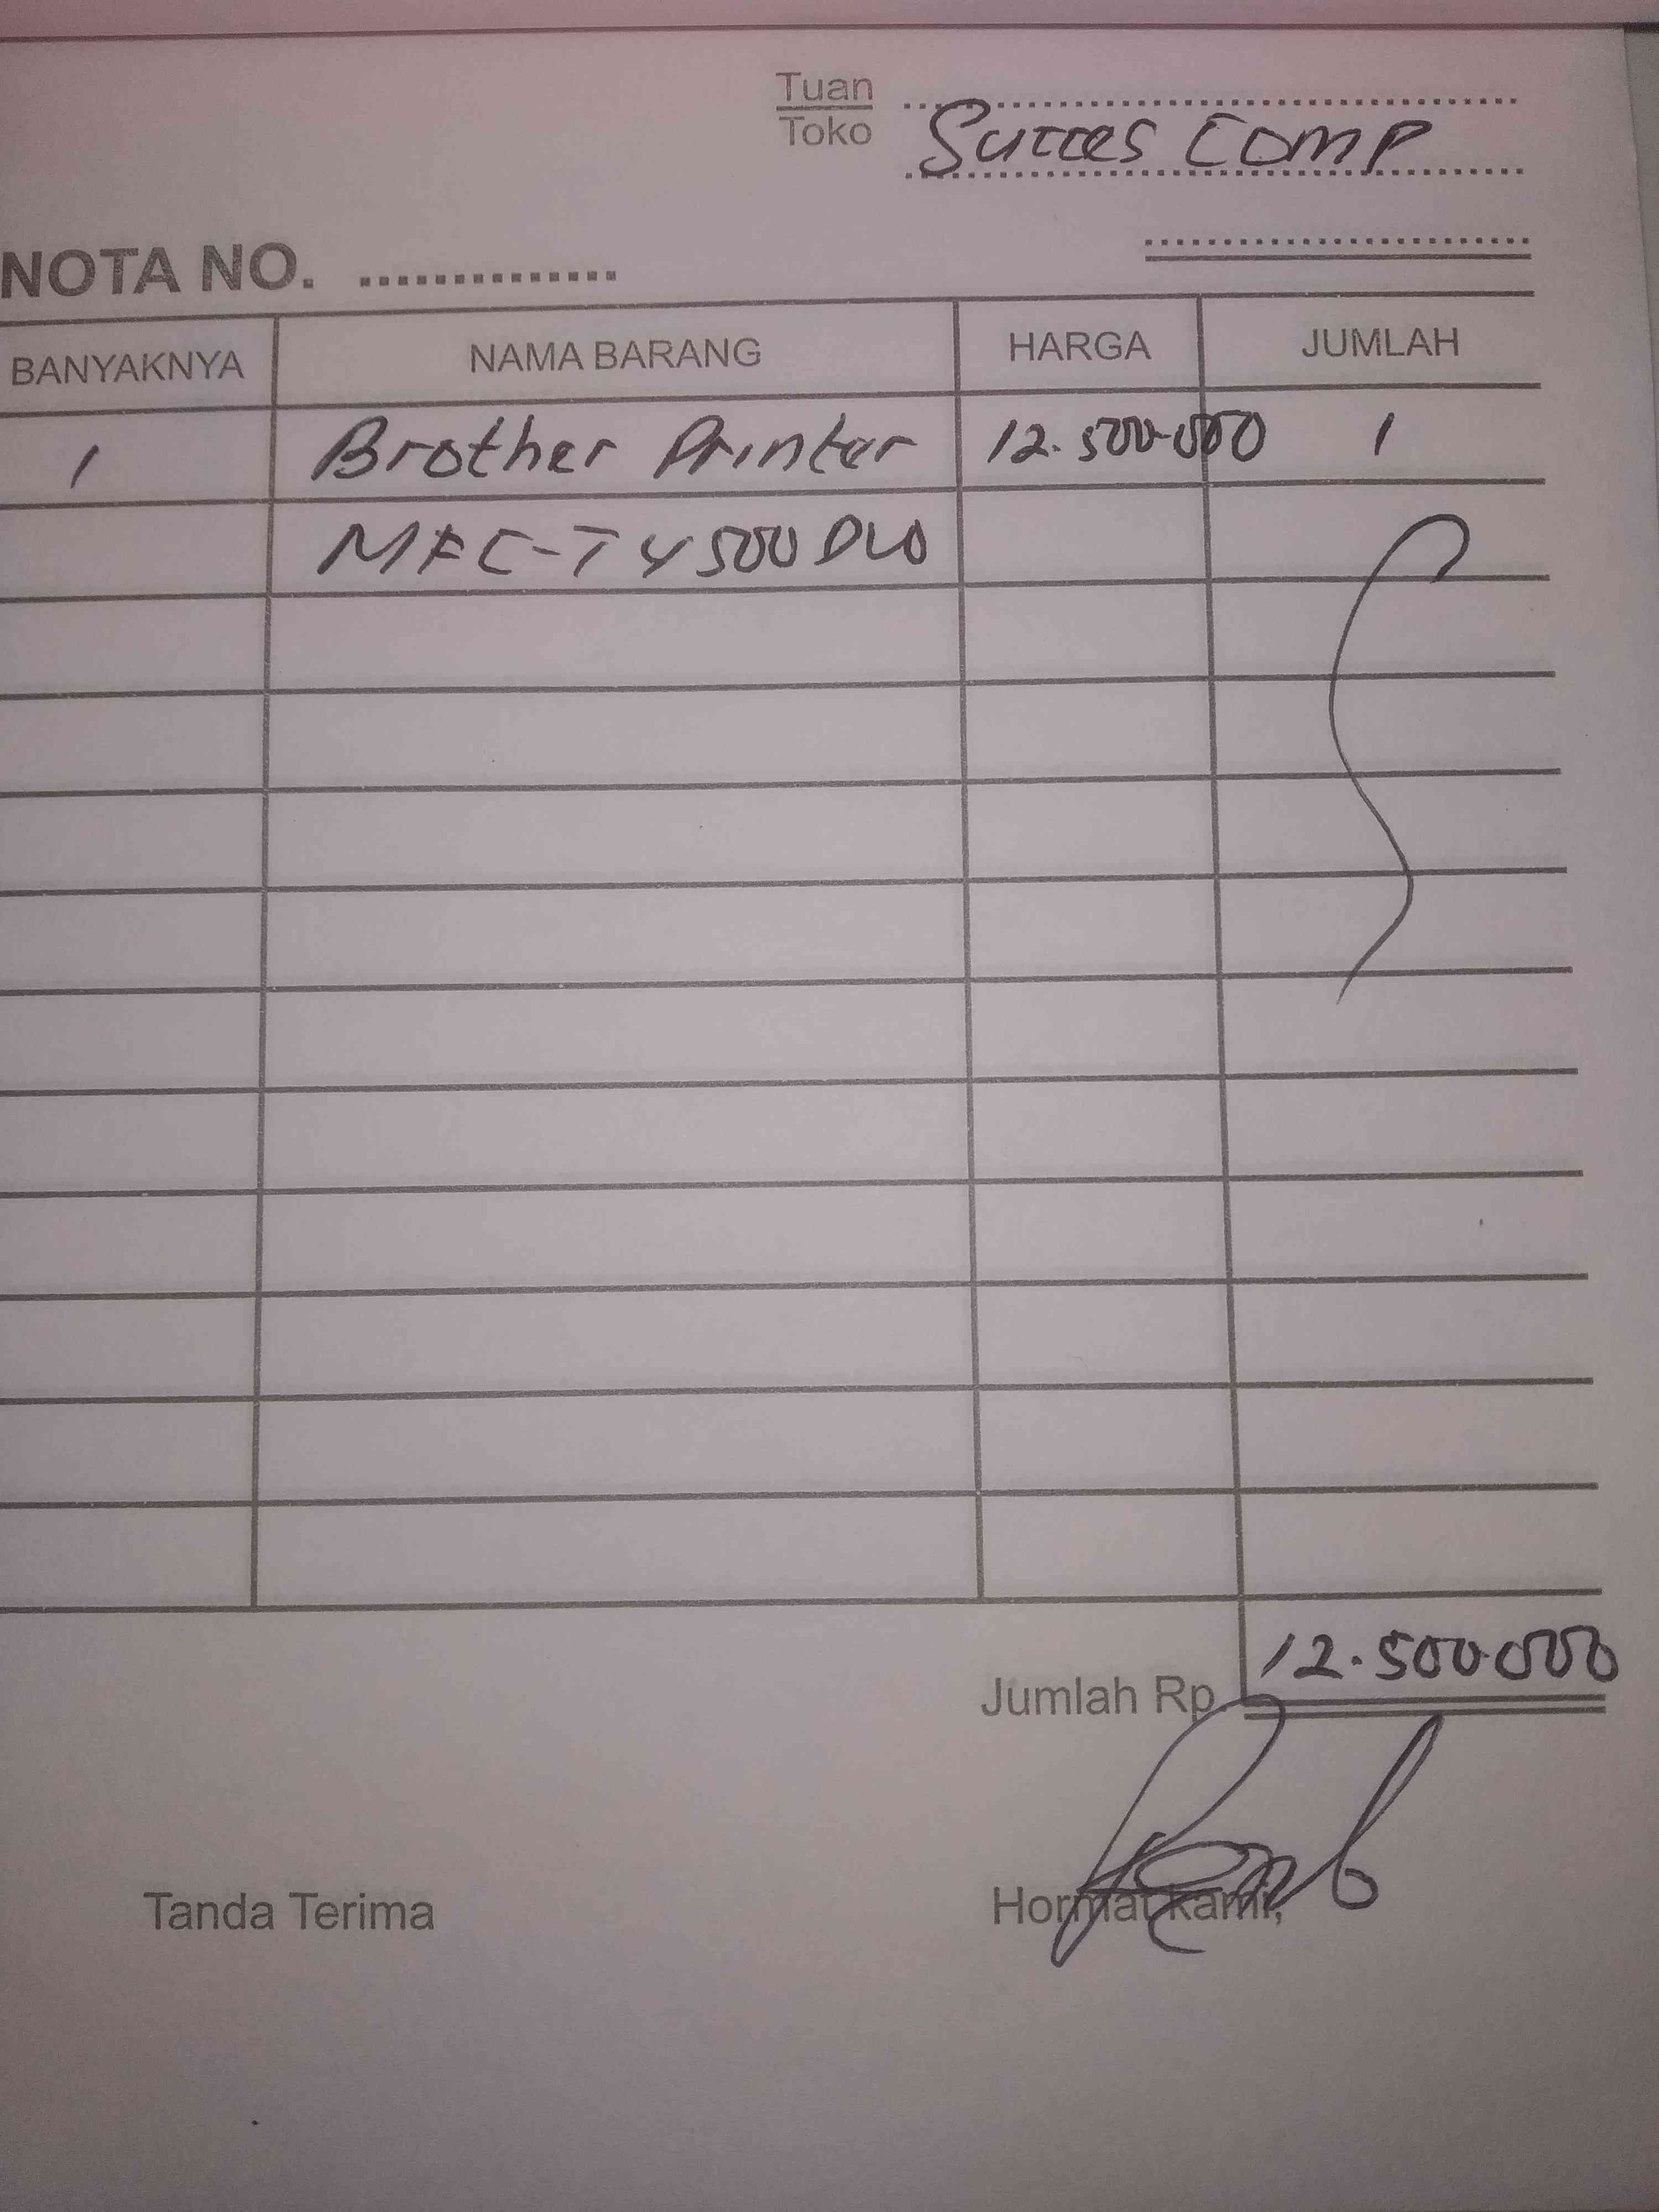 Tuan
Toko Succes Comp
NOTA NO. ..............
BANYAKNYA NAMA BARANG HARGA JUMLAH
1 Brother Printer 12.500.000 1
MFC-T4500DW
Jumlah Rp 12.500.000
Tanda Terima Hormat kami,